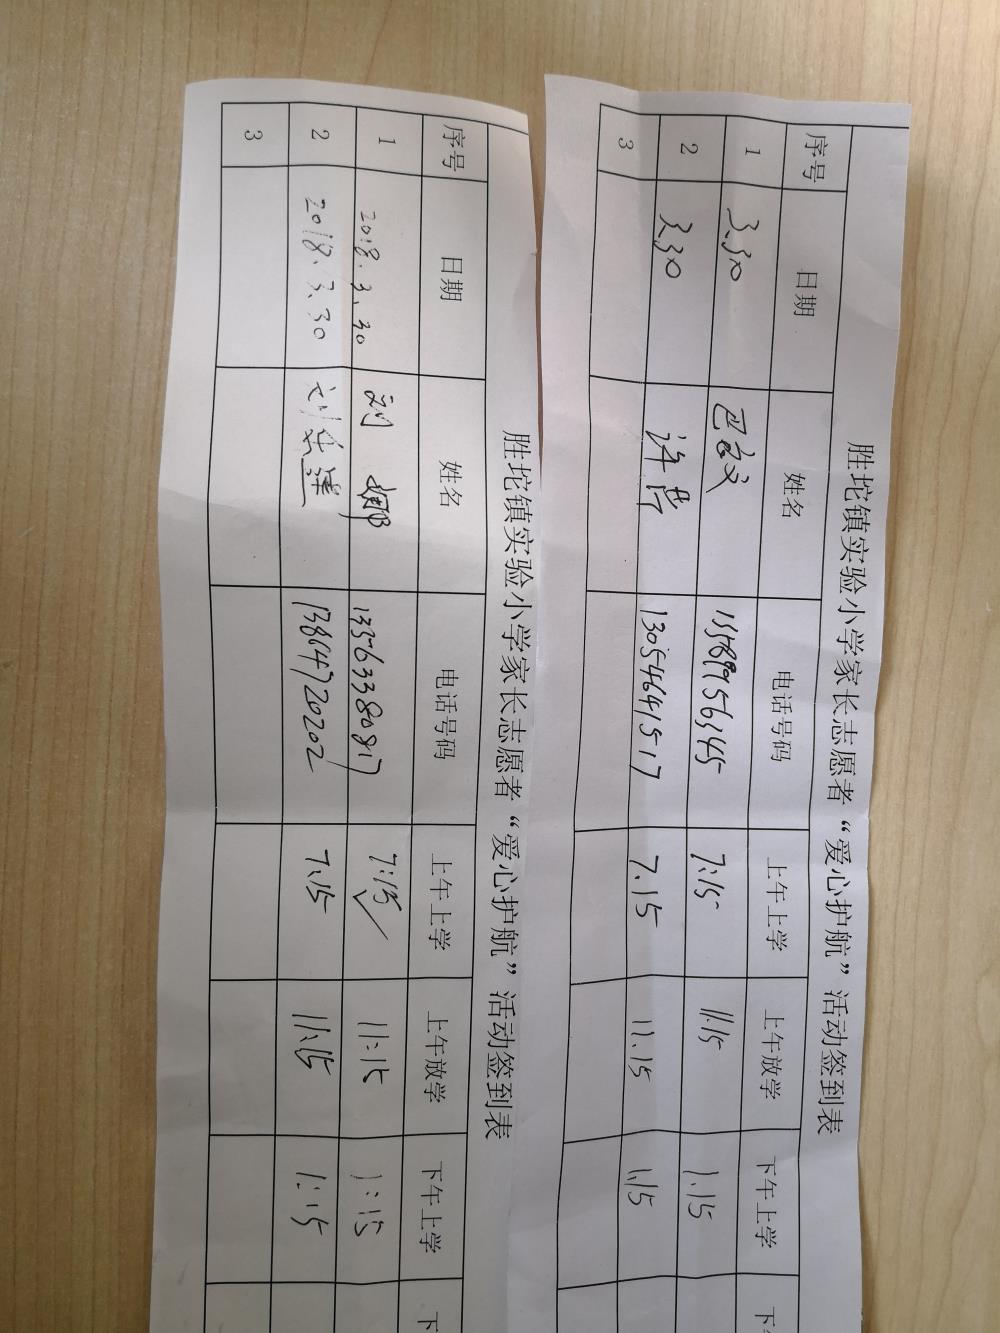 胜坨镇实验小学家长志愿者“爱心护航”活动签到表
序号 日期 姓名 电话号码 上午上学 上午放学 下午上学 下
1 3.30 13589956345 7:15 11:15 1:15
2 3.30 许 13054641517 7.15 11.15 1.15
3
胜坨镇实验小学家长志愿者“爱心护航”活动签到表
序号 日期 姓名 电话号码 上午上学 上午放学 下午上学 下
1 2018.3.30 刘娜 13563380817 7:15 ✓ 11:15 1:15
2 2018.3.30 刘 13864720202 7:15 11:15 1:15
3